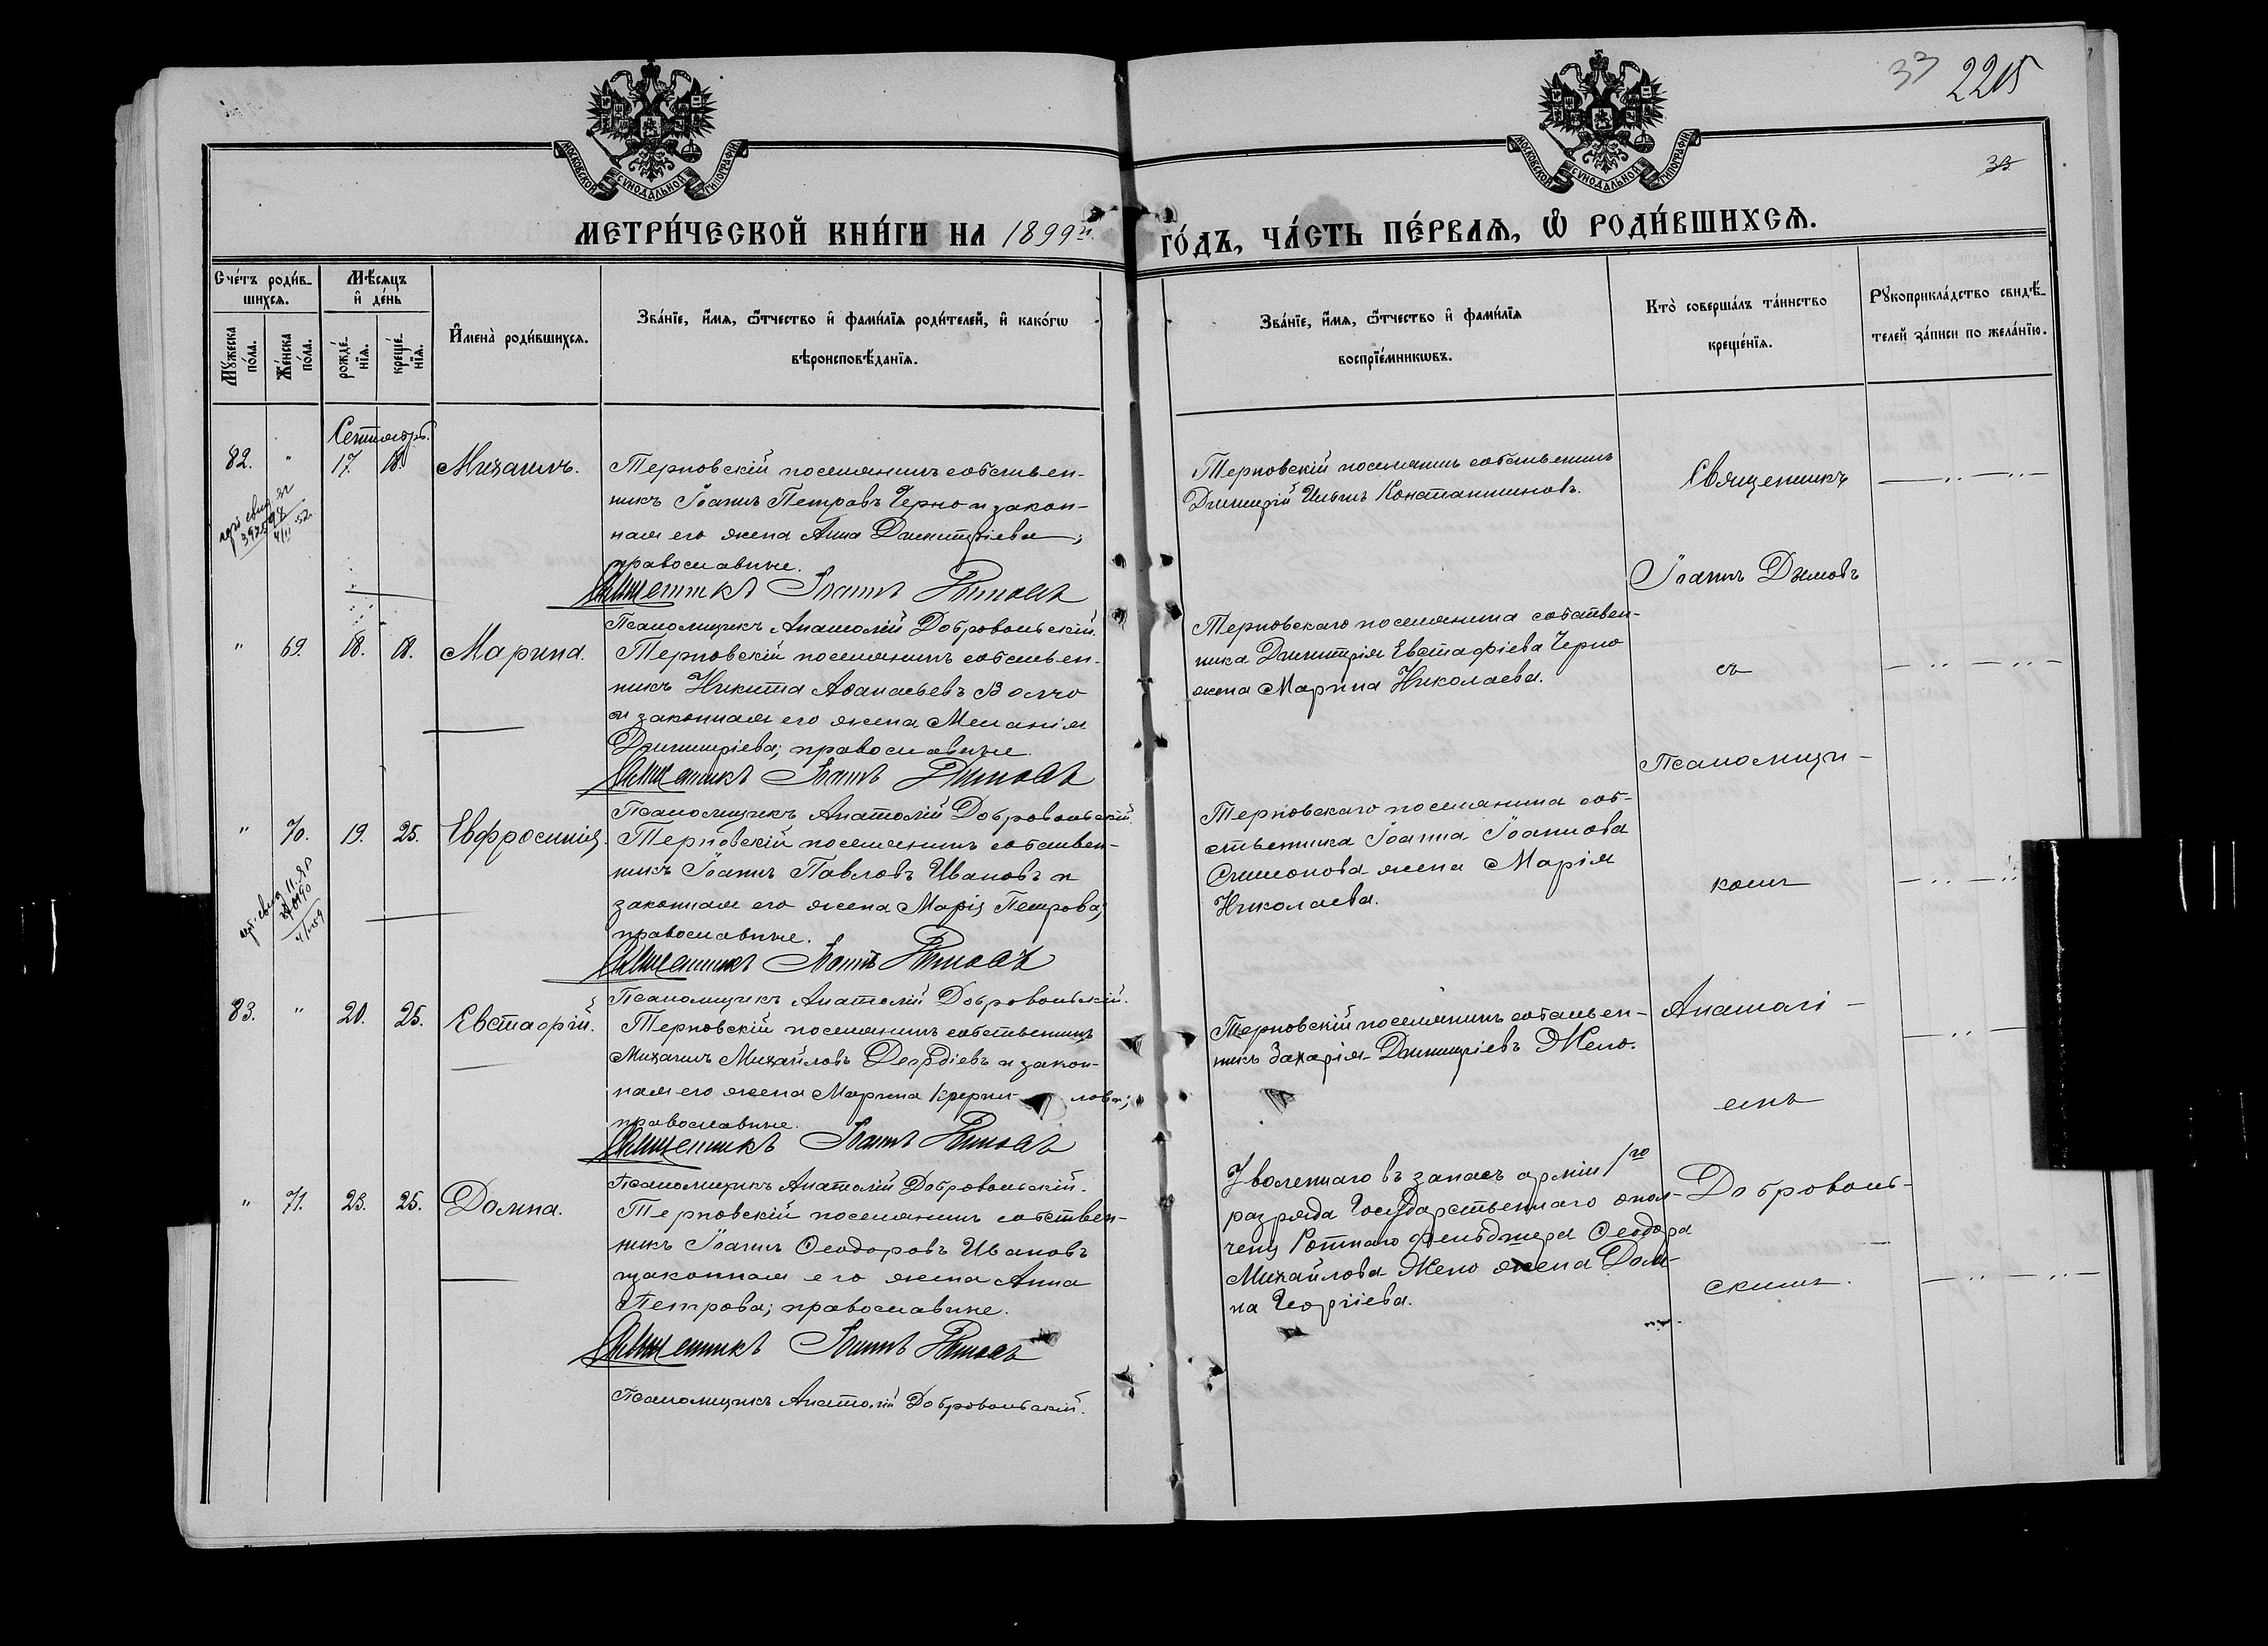 33 2215
МОСКОВСКОЙ СѴНОДАЛЬНОЙ ТИПОГРАФІИ
МОСКОВСКОЙ СѴНОДАЛЬНОЙ ТИПОГРАФІИ
33
МЕТРИ́ЧЕСКОЙ КНИ́ГИ НА 1899й
ГО́ДЪ, ЧА́СТЬ ПЕ́РВАѦ, Ѡ҆ РОДИ́ВШИХСѦ.
Сче́тъ роди́в-
шихсѧ.
Мꙋ́жеска
по́ла.
Же́нска
по́ла.
Мѣ́сѧцъ
и҆ де́нь
рожде́-
нїѧ.
креще́-
нїѧ.
И҆мена̀ роди́вшихсѧ.
Зва́нїе, и҆́мѧ, ѻ҆́тчество и҆ фами́лїѧ роди́телей, и҆ како́гѡ
вѣроисповѣ́данїѧ.
Зва́нїе, и҆́мѧ, ѻ҆́тчество и҆ фами́лїѧ
воспрїе́мникѡвъ.
Кто̀ соверша́лъ та́инство
креще́нїѧ.
Рꙋкоприкла́дство свидѣ́-
телей за́писи по жела́нїю.
Сентябрь.
82. " 17. 18. Михаилъ.
Терновскій поселянинъ собствен-
никъ Іоаннъ Петровъ Черно и закон-
ная его жена Анна Димитріева;
православные.
Священникъ Іоаннъ Димовъ
Псаломщикъ Анатолій Добровольскій.
Терновскій поселянинъ собственникъ
Димитрій Ильинъ Константиновъ.
" 69. 18. 18. Марина.
Терновскій поселянинъ собствен-
никъ Никита Аѳанасьевъ Волчо
и законная его жена Меланія
Димитріева; православные.
Священникъ Іоаннъ Димовъ
Псаломщикъ Анатолій Добровольскій.
Терновскаго поселянина собствен-
ника Димитрія Евстафіева Черно
жена Марина Николаева.
" 70. 19. 25. Евфросинія.
Терновскій поселянинъ собствен-
никъ Іоаннъ Павловъ Ивановъ и
законная его жена Марія Петрова;
православные.
Священникъ Іоаннъ Димовъ
Псаломщикъ Анатолій Добровольскій.
Терновскаго поселянина соб-
ственника Іоанна Іоаннова
Симонова жена Марія
Николаева.
83. " 20. 25. Евстафій.
Терновскій поселянинъ собственникъ
Михаилъ Михайловъ и закон-
ная его жена Марина
православные.
Священникъ Іоаннъ Димовъ
Псаломщикъ Анатолій Добровольскій.
Терновскій поселянинъ собствен-
никъ Захарія Димитріевъ Жело.
" 71. 23. 25. Домна.
Терновскій поселянинъ собствен-
никъ Іоаннъ Ѳеодоровъ Ивановъ
и законная его жена Анна
Петрова; православные.
Священникъ Іоаннъ Димовъ
Псаломщикъ Анатолій Добровольскій.
Уволеннаго въ запасъ арміи 1го
разряда Государственнаго опол-
ченц Ротнаго фельдшера Ѳеодора
Михайлова Жело жена Дом-
на Георгіева.
Священникъ
Іоаннъ Димовъ
съ
Псаломщи-
комъ
Анатолі-
емъ
Доброволь-
скимъ.